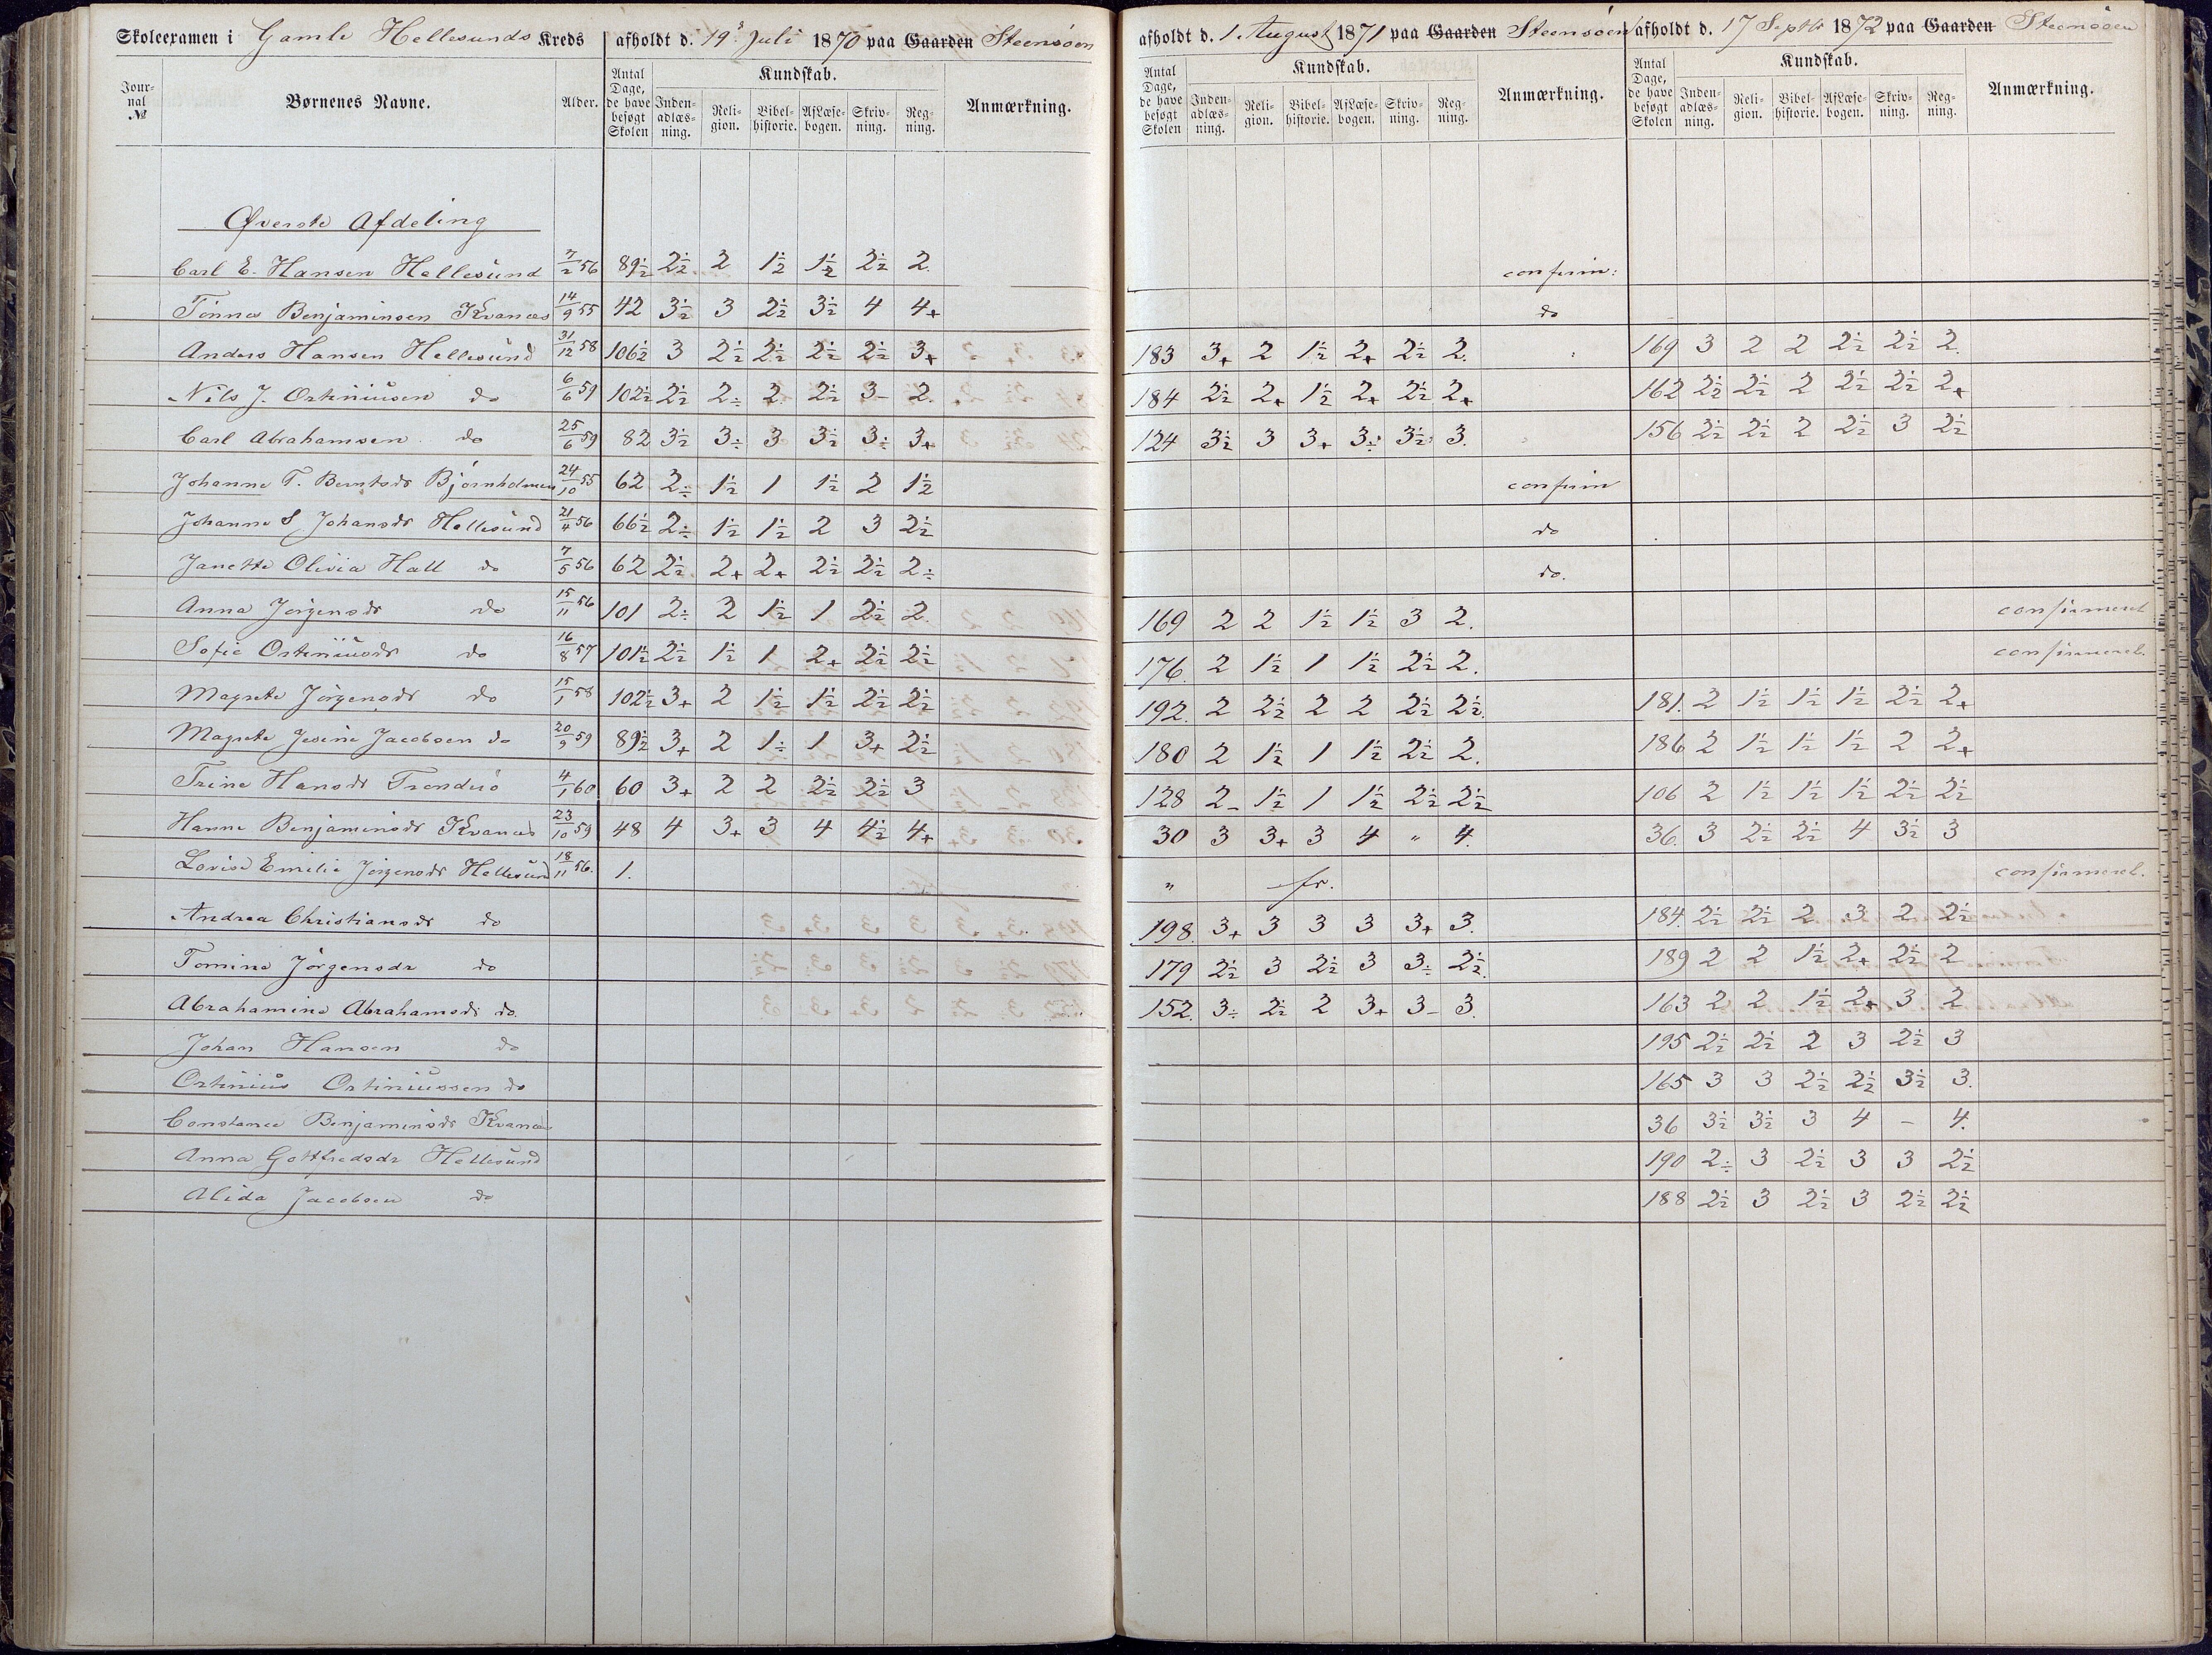 Skoleexamen i Gamle Hellesunds Kreds afholdt d. 19. Juli 1870 paa Gaarden Steensøen afholdt d. 1. August 1871 paa Gaarden Steensøen afholdt d. 17 Septbr 1872 paa Gaarden Steensøen
Journal № Børnenes Navne. Alder. Antal Dage, de have besøgt Skolen Kundskab. Indenadlæsning. Religion. Bibelhistorie. AfLæsebogen. Skrivning. Regning. Anmærkning. Antal Dage, de have besøgt Skolen Kundskab. Indenadlæsning. Religion. Bibelhistorie. AfLæsebogen. Skrivning. Regning. Anmærkning. Antal Dage, de have besøgt Skolen Kundskab. Indenadlæsning. Religion. Bibelhistorie. AfLæsebogen. Skrivning. Regning. Anmærkning.
Øverste Afdeling
Carl E. Hansen Hellesund 7/2 56 89½ 2½ 2 1½ 1½ 2½ 2. confirm:
Tønnes Benjaminsen Kvanæs 14/9 55 42 3½ 3 2½ 3½ 4 4+ do
Anders Hansen Hellesund 31/12 58 106½ 3 2½ 2½ 2½ 2½ 3+ 183 3+ 2 1½ 2+ 2½ 2. 169 3 2 2 2½ 2½ 2.
Nils J. Ostiniusen do 6/6 59 102½ 2½ 2÷ 2 2½ 3- 2. 184 2½ 2+ 1½ 2+ 2½ 2+ 162 2½ 2½ 2 2½ 2½ 2+
Carl Abrahamsen do 25/6 59 82 3½ 3÷ 3 3½ 3÷ 3+ 124 3½ 3 3+ 3÷ 3½ 3. 156 2½ 2½ 2 2½ 3 2½
Johanne T. Berntsdr Bjørnholmen 24/10 55 62 2÷ 1½ 1 1½ 2 1½ confirm
Johanne S Johansdr Hellesund 21/4 56 66½ 2÷ 1½ 1½ 2 3 2½ do
Janette Olivia Hall do 7/5 56 62 2½ 2+ 2+ 2½ 2½ 2÷ do.
Anna Jørgensdr do 15/11 56 101 2÷ 2 1½ 1 2½ 2. 169 2 2 1½ 1½ 3 2. confirmeret
Sofie Ostiniusdr do 16/8 57 101½ 2½ 1½ 1 2+ 2½ 2½ 176 2 1½ 1 1½ 2½ 2. confirmeret.
Magrete Jørgensdr do 15/1 58 102½ 3+ 2 1½ 1½ 2½ 2½ 192. 2 2½ 2 2 2½ 2½. 181. 2 1½ 1½ 1½ 2½ 2+
Magrete Jesine Jacobsen do 20/9 59 89½ 3+ 2 1÷ 1 3+ 2½ 180 2 1½ 1 1½ 2½ 2. 186 2 1½ 1½ 1½ 2 2+
Trine Hansdr Trondsø 4/1 60 60 3+ 2 2 2½ 2½ 3 128 2- 1½ 1 1½ 2½ 2½ 106 2 1½ 1½ 1½ 2½ 2½
Hanne Benjaminsdr Kvanæs 23/10 59 48 4 3+ 3 4 4½ 4+ 30 3 3+ 3 4 " 4. 36. 3 2½ 2½ 4 3½ 3
Lovise Emilie Jørgensdr Hellesund 18/11 56. 1. " fr. confirmeret.
Andrea Christiansdr do 198. 3+ 3 3 3 3+ 3. 184. 2½ 2½ 2 3 2 2½
Tomine Jørgensdr do 179 2½ 3 2½ 3 3÷ 2½. 189 2 2 1½ 2+ 2½ 2
Abrahamine Abrahamsdr do. 152. 3÷ 2½ 2 3+ 3- 3. 163 2 2 1½ 2+ 3 2
Johan Hansen do 195 2½ 2½ 2 3 2½ 3
Ostinius Ostiniussen do 165 3 3 2½ 2½ 3½ 3.
Constance Benjaminsdr Kvanæs 36 3½ 3½ 3 4 - 4.
Anna Gottfredsdr Hellesund 190 2÷ 3 2½ 3 3 2½
Alida Jacobsen do 188 2½ 3 2½ 3 2½ 2½